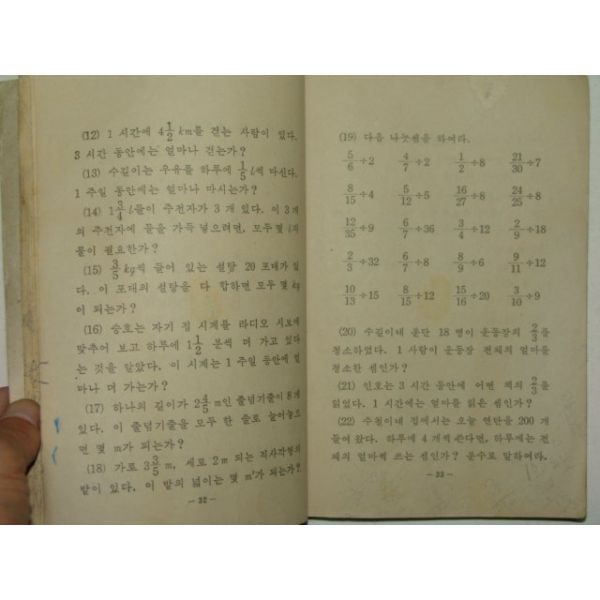 (12) 1 시간에 4 1/2 km를 걷는 사람이 있다.
3 시간 동안에는 얼마나 걷는가?
(13) 수길이는 우유를 하루에 1/5 l씩 마신다.
1 주일 동안에는 얼마나 마시는가?
(14) 1 3/4 l들이 주전자가 3 개 있다. 이 3 개
의 주전자에 물을 가득 넣으려면, 모두 몇 l의
물이 필요한가?
(15) 3/5 kg씩 들어 있는 설탕 20 포대가 있
다. 이 포대의 설탕을 다 합하면 모두 몇 kg
이 되는가?
(16) 승호는 자기 집 시계를 라디오 시보에
맞추어 보고 하루에 1 1/2 분씩 더 가고 있다
는 것을 알았다. 이 시계는 1 주일 동안에 얼
마나 더 가는가?
(17) 하나의 길이가 2 4/5 m인 줄넘기줄이 8 개
있다. 이 줄넘기줄을 모두 한 줄로 늘어놓으
면 몇 m가 되는가?
(18) 가로 3 3/5 m, 세로 2 m 되는 직사각형의
밭이 있다. 이 밭의 넓이는 몇 m²가 되는가?
- 32 -
(19) 다음 나눗셈을 하여라.
5/6÷2 4/7÷2 1/2÷8 21/30÷7
8/15÷4 5/12÷5 16/27÷8 24/25÷8
12/35÷9 6/7÷36 3/4÷12 2/9÷18
2/3÷32 6/7÷8 8/9÷6 9/11÷12
10/13÷15 8/15÷12 15/16÷20 3/10÷9
(20) 수길이네 분단 18 명이 운동장의 2/3를
청소하였다. 1 사람이 운동장 전체의 얼마를
청소한 셈인가?
(21) 인호는 3 시간 동안에 어떤 책의 2/3를
읽었다. 1 시간에는 얼마를 읽은 셈인가?
(22) 수철이네 집에서는 오늘 연탄을 200 개
들여 왔다. 하루에 4 개씩 쓴다면, 하루에는 전
체의 얼마씩 쓰는 셈인가? 분수로 말하여라.
- 33 -